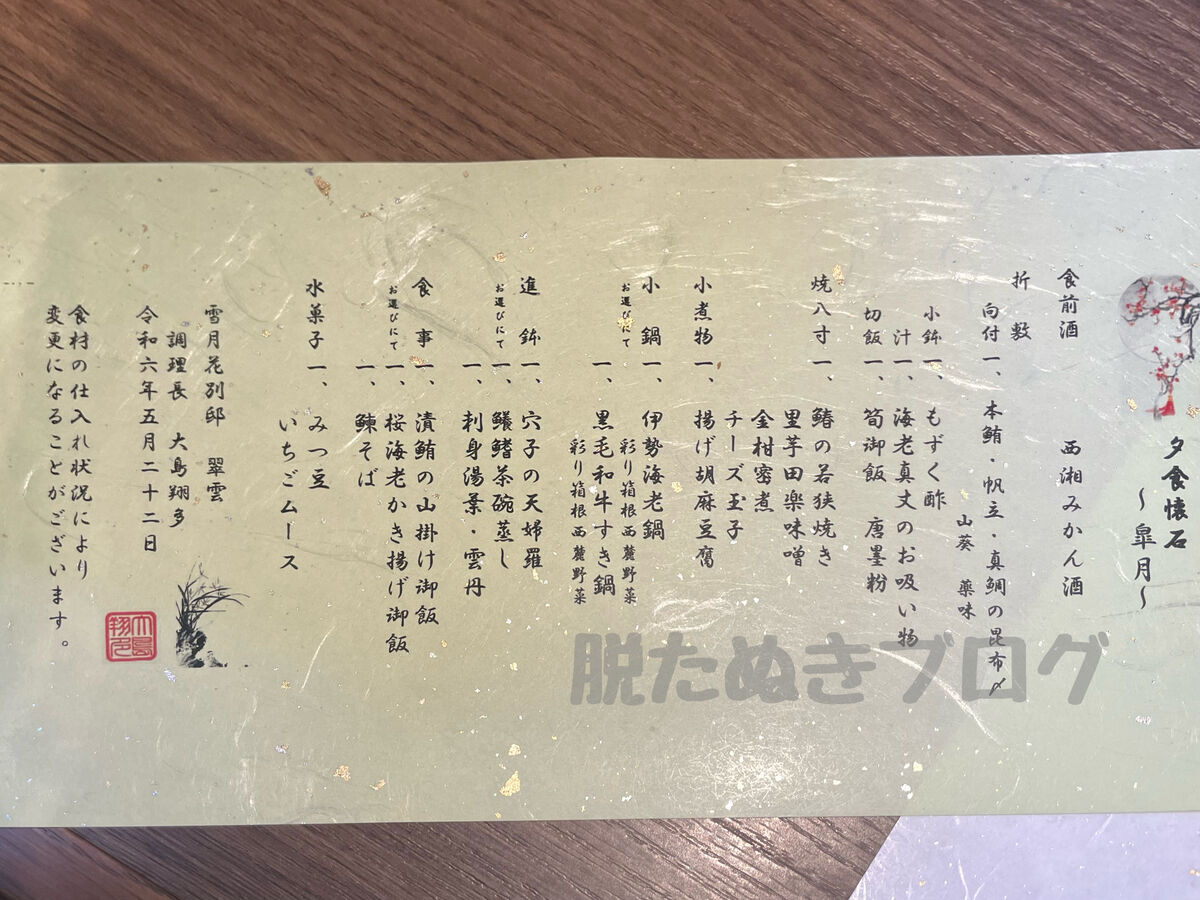 夕食懐石
～皐月～
食前酒　西湘みかん酒
折敷
向付一、本鮪・帆立・真鯛の昆布〆
山葵　薬味
小鉢一、もずく酢
汁一、海老真丈のお吸い物
切飯一、筍御飯　唐墨粉
焼八寸一、鰆の若狭焼き
里芋田楽味噌
金柑密煮
チーズ玉子
小煮物一、揚げ胡麻豆腐
小鍋一、伊勢海老鍋
お運びにて
彩り箱根西麓野菜
一、黒毛和牛すき鍋
彩り箱根西麓野菜
進鉢一、穴子の天婦羅
お運びにて
一、鱶鰭茶碗蒸し
一、刺身湯葉・雲丹
食事一、漬鮪の山掛け御飯
お運びにて
一、桜海老かき揚げ御飯
一、鰊そば
水菓子一、みつ豆
いちごムース
雪月花別邸　翠雲
調理長　大島翔多
令和六年五月二十二日
食材の仕入れ状況により
変更になることがございます。
脱たぬきブログ